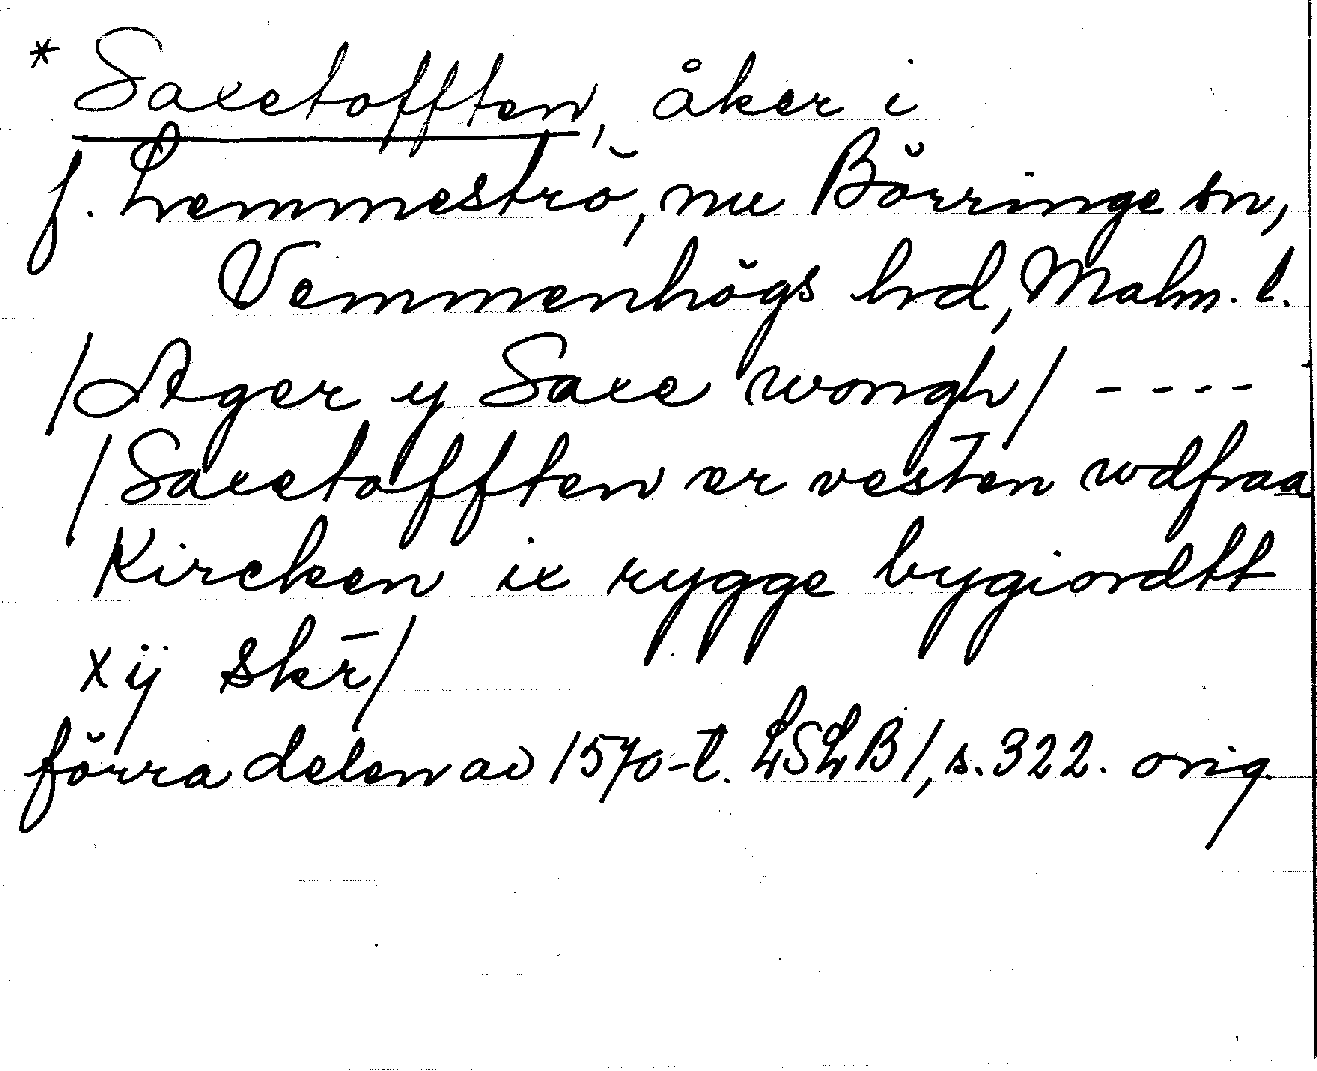 * Saxetofften, åker i
f. Lemmeströ, nu Börringe sn,
Vemmenhögs hd, Malm. l.
/Ager y Saxe wongh/ - - - -
/Saxetofften er vesten wdfraa
Kircken ix rygge bygiordtt
xij skr̄/
förra delen av 1570-t. LSLB1, s. 322. orig.